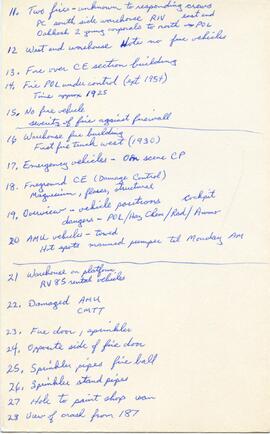 11. Two fires - unknown to responding crews
PC south side warehouse RIV east end
Oakleek 2 young corporals to north → POL
12 West end warehouse Note no fire vehicles
13. Fire over CE section building
14. Fire POL under control (ext 1954)
Time approx 1925
15. No fire vehicle
severity of fire against firewall
16 Warehouse fire building
First fire truck west (1930)
17. Emergency vehicles - on scene CP
18. Fireground CE (Damage Control)
Magnesium, flares, structural
19. Overview - vehicle positions cockpit
dangers - POL/Haz Chem/Rad/Ammo
20 AMU vehicles - towed
Hot spots manned pumper til Monday AM
21 Warehouse on platform
RV 85 rental vehicles
22. Damaged AMU
CMTT
23. Fire door, sprinkler
24. Opposite side of fire door
25. Sprinkler pipes fire ball
26. Sprinkler stand pipes
27 Hole to paint shop wall
28 View of crash from 187